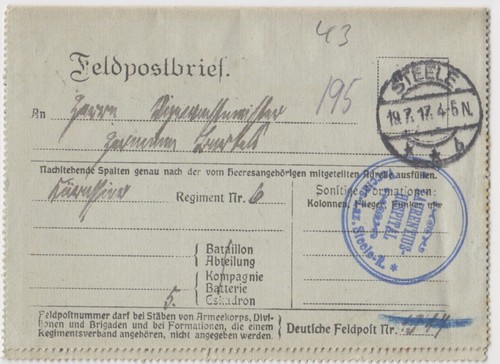 43
Feldpostbrief.
195
STEELE
19.7.17.4-5N.
* * b
An Herrn Vizewachtmeister
Hermann
Nachstehende Spalten genau nach der vom Heeresangehörigen mitgeteilten Adresse ausfüllen.
Kürassier Regiment Nr. 6
Sonstige Formationen:
Kolonnen, Flieger, Funker usw.
Bataillon
Abteilung
Kompagnie
Batterie
5. Eskadron
Steele-R. *
Feldpostnummer darf bei Stäben von Armeekorps, Divi-
sionen und Brigaden und bei Formationen, die einem
Regimentsverband angehören, nicht angegeben werden.
Deutsche Feldpost Nr.